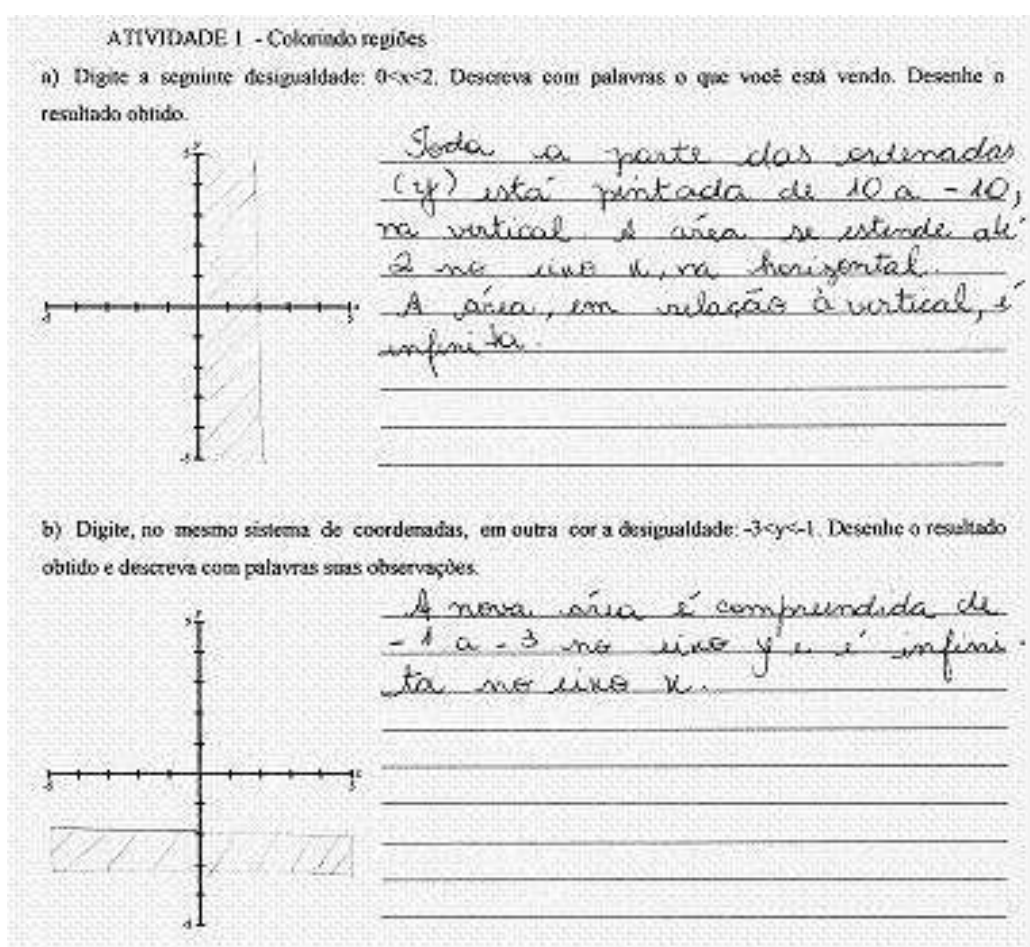 ATIVIDADE 1 - Colorindo regiões
a) Digite a seguinte desigualdade: 0<x<2. Descreva com palavras o que você está vendo. Desenhe o
resultado obtido.
Toda a parte das ordenadas
(y) está pintada de 10 a -10,
na vertical. A área se estende até
2 no eixo x, na horizontal.
A área, em relação à vertical, é
infinita.
y
5
-5
5
x
-5
b) Digite, no mesmo sistema de coordenadas, em outra cor a desigualdade: -3<y<-1. Desenhe o resultado
obtido e descreva com palavras suas observações.
A nova área é compreendida de
-1 a -3 no eixo y e é infini-
ta no eixo x.
y
5
-5
5
x
-5